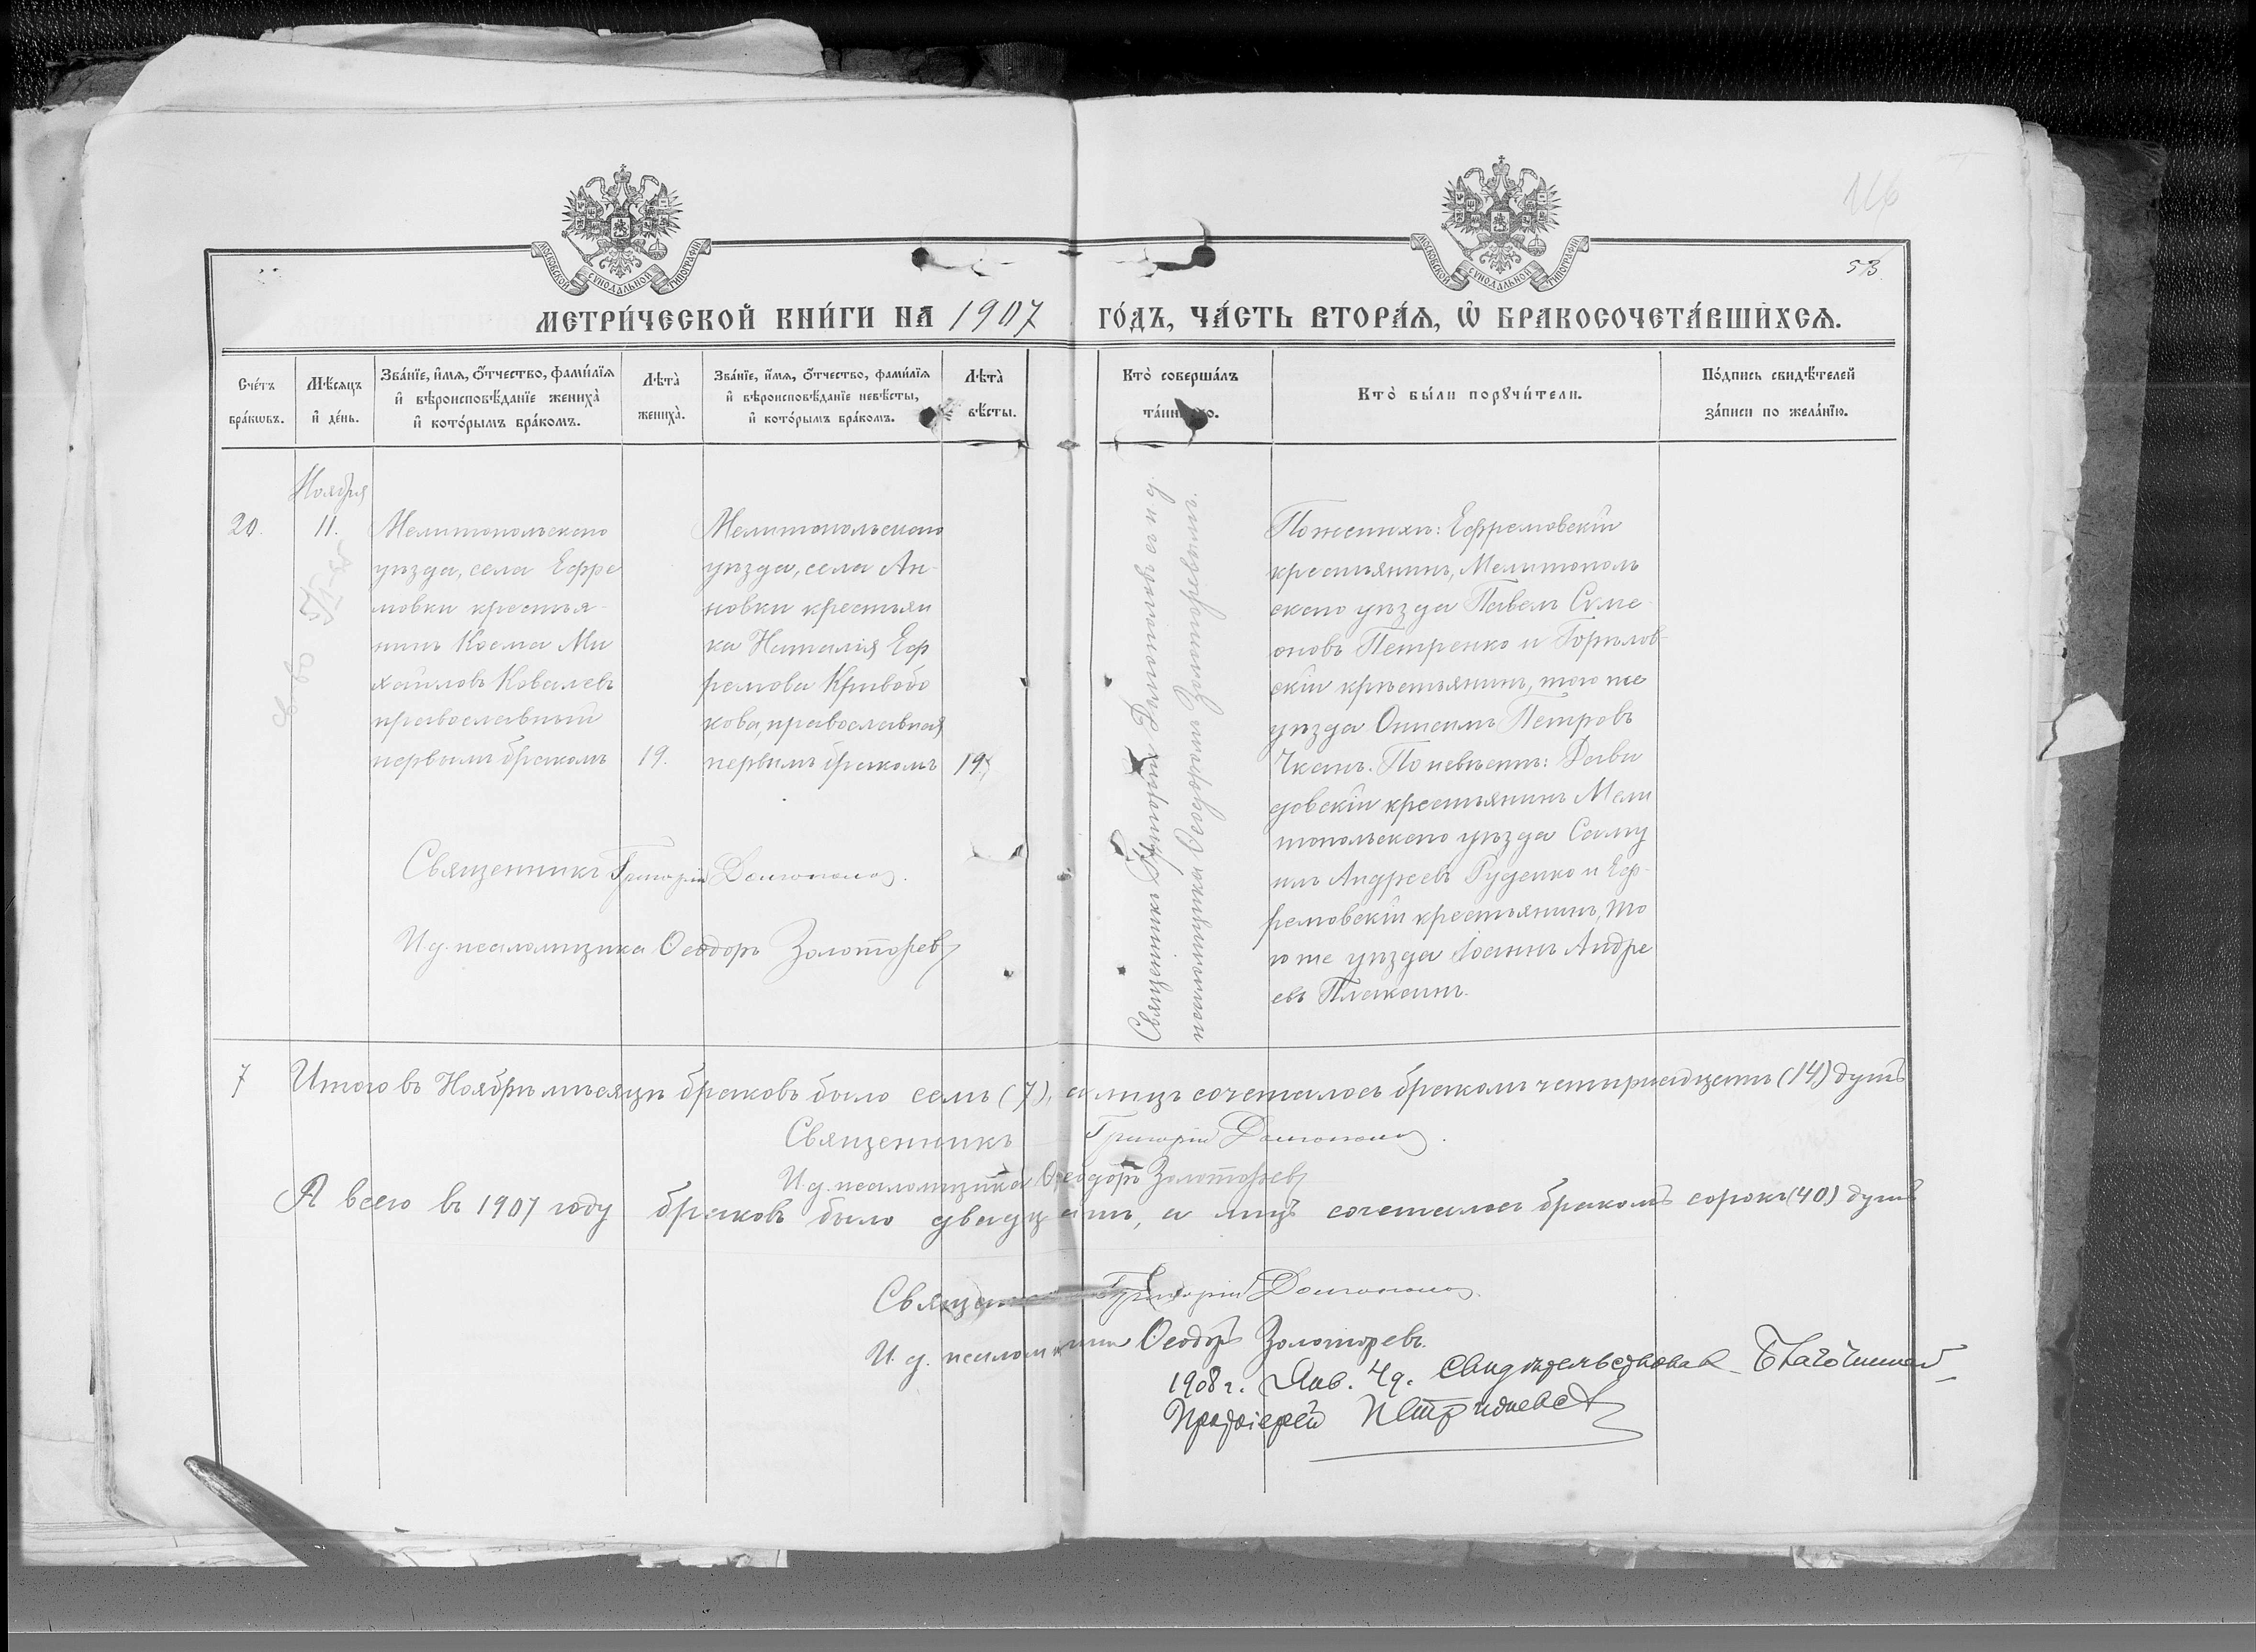 53.
МОСКОВСКОЙ СѴНОДАЛЬНОЙ ТИПОГРАФІИ
МОСКОВСКОЙ СѴНОДАЛЬНОЙ ТИПОГРАФІИ
МЕТРИ́ЧЕСКОЙ КНИ́ГИ НА 1907 ГО́ДЪ, ЧА́СТЬ ВТОРА́Ѧ, Ѽ БРАКОСОЧЕТА́ВШИХСѦ.
Сче́тъ бра́кѡвъ.
Мѣ́сяцъ и де́нь.
Зва́нїе, и́мѧ, о́тчество, фами́лїѧ и вѣроисповѣ́данїе жениха̀ и кото́рымъ бра́комъ.
Лѣта̀ жениха̀.
Зва́нїе, и́мѧ, о́тчество, фами́лїѧ и вѣроисповѣ́данїе невѣ́сты, и кото́рымъ бра́комъ.
Лѣта̀ вѣ́сты.
Кто̀ соверша́лъ
Кто̀ бы́ли порꙋчи́тели.
По́дпись свидѣ́телей за́писи по жела́нїю.
Ноября
20.
11.
Мелитопольскаго
уѣзда, села Ефре
мовки крестья-
нинъ Косма Ми
хаиловъ Ковалевъ
православный
первымъ бракомъ
19.
Мелитопольскаго
уѣзда, села Ан-
новки крестьян
ка Наталія Еф
ремова Кривобо
кова, православная
первымъ бракомъ
19.
Священникъ Григорій Долгополовъ и и.д.
псаломщика Ѳеодоръ Золоторевъ.
По женихѣ: Ефремовскій
крестьянинъ, Мелитополь
скаго уѣзда Павелъ Симе
оновъ Петренко и Горѣлов-
скій крестьянинъ, того же
уѣзда Онисимъ Петровъ
Чканъ. По невѣстѣ: Дави
довскій крестьянинъ Мели
топольскаго уѣзда Саму
илъ Андреевъ Руденко и Еф-
ремовскій крестьянинъ, то
го же уѣзда Іоаннъ Андре
евъ Плаксинъ.
Священникъ Григорій Долгополов.
И.д. псаломщика Ѳеодоръ Золоторев
7 Итого въ Ноябрѣ мѣсяцѣ браковъ было семь (7), а лицъ сочеталось бракомъ четырнадцать (14) душъ
Священникъ Григорій Долгополов.
И.д. псаломщика Ѳеодоръ Золоторев
А всего въ 1907 году браковъ было двадцать, а лицъ сочеталось бракомъ сорокъ (40) душъ
Священникъ Григорій Долгополов.
И. д. псаломщика Ѳеодоръ Золоторевъ.
1908 г. Янв. 4 д. Свидѣтельствовал Благочинный
Протоіерей